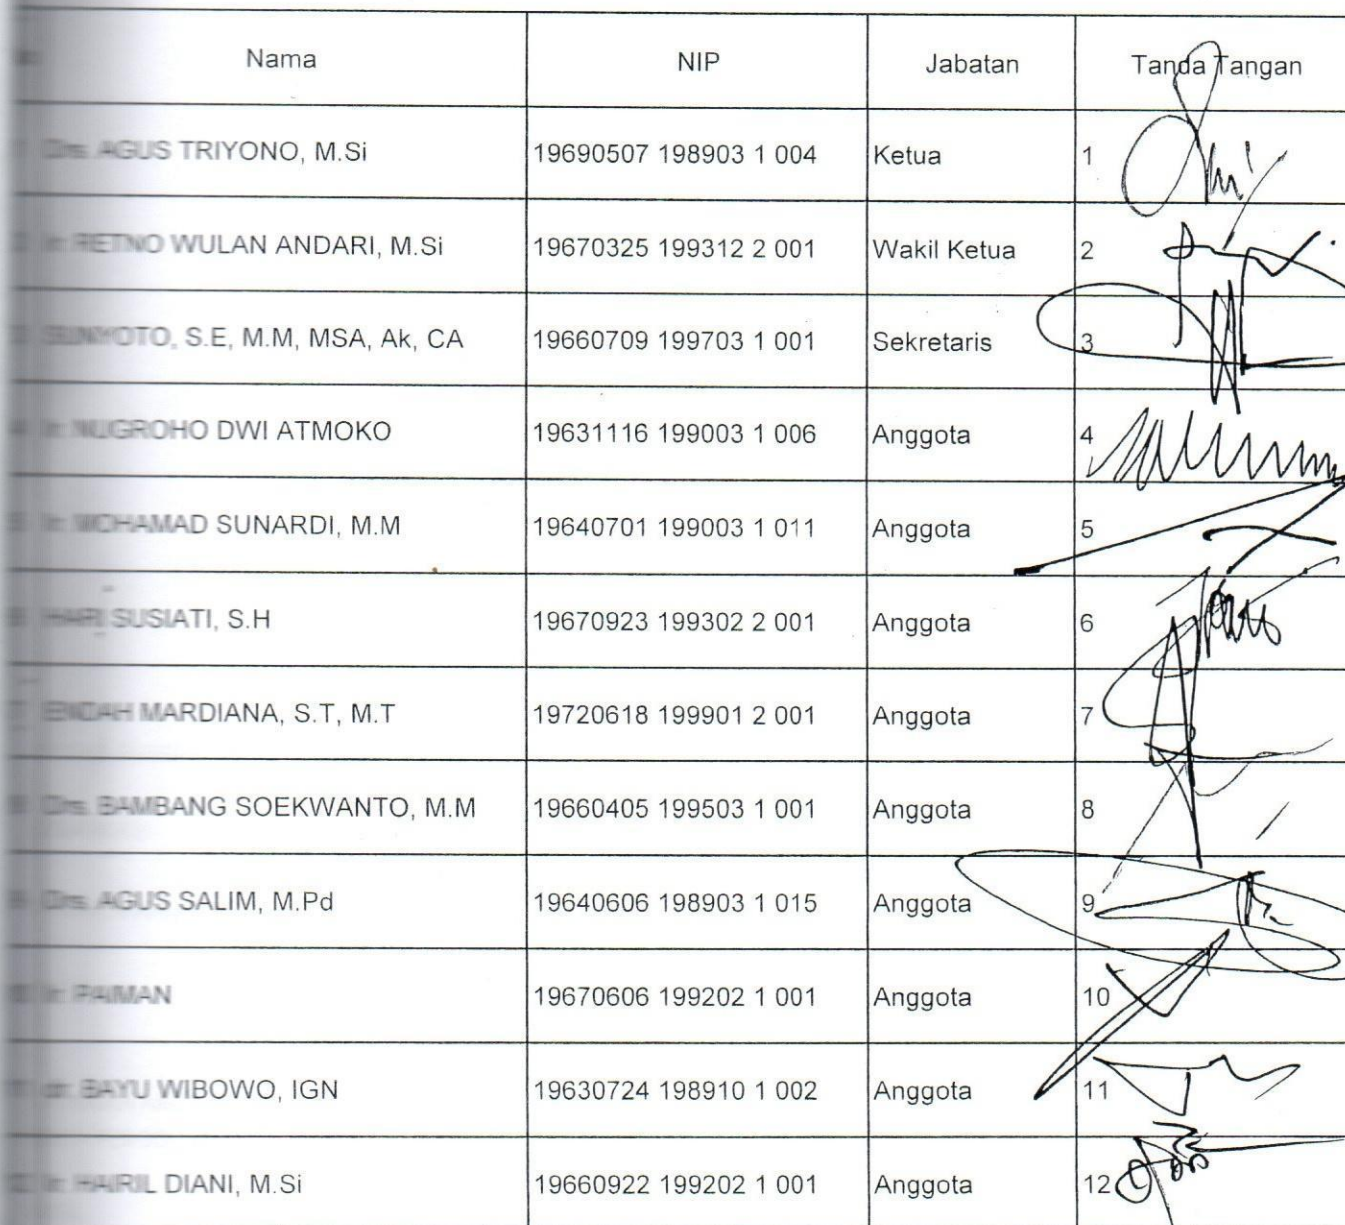 Nama NIP Jabatan Tanda Tangan
Drs. AGUS TRIYONO, M.Si 19690507 198903 1 004 Ketua 1
Ir. RETNO WULAN ANDARI, M.Si 19670325 199312 2 001 Wakil Ketua 2
SUNYOTO, S.E, M.M, MSA, Ak, CA 19660709 199703 1 001 Sekretaris 3
Ir. NUGROHO DWI ATMOKO 19631116 199003 1 006 Anggota 4
Ir. MOHAMAD SUNARDI, M.M 19640701 199003 1 011 Anggota 5
HARI SUSIATI, S.H 19670923 199302 2 001 Anggota 6
ENDAH MARDIANA, S.T, M.T 19720618 199901 2 001 Anggota 7
Drs. BAMBANG SOEKWANTO, M.M 19660405 199503 1 001 Anggota 8
Drs. AGUS SALIM, M.Pd 19640606 198903 1 015 Anggota 9
Ir. PAIMAN 19670606 199202 1 001 Anggota 10
dr. BAYU WIBOWO, IGN 19630724 198910 1 002 Anggota 11
Ir. HAIRIL DIANI, M.Si 19660922 199202 1 001 Anggota 12